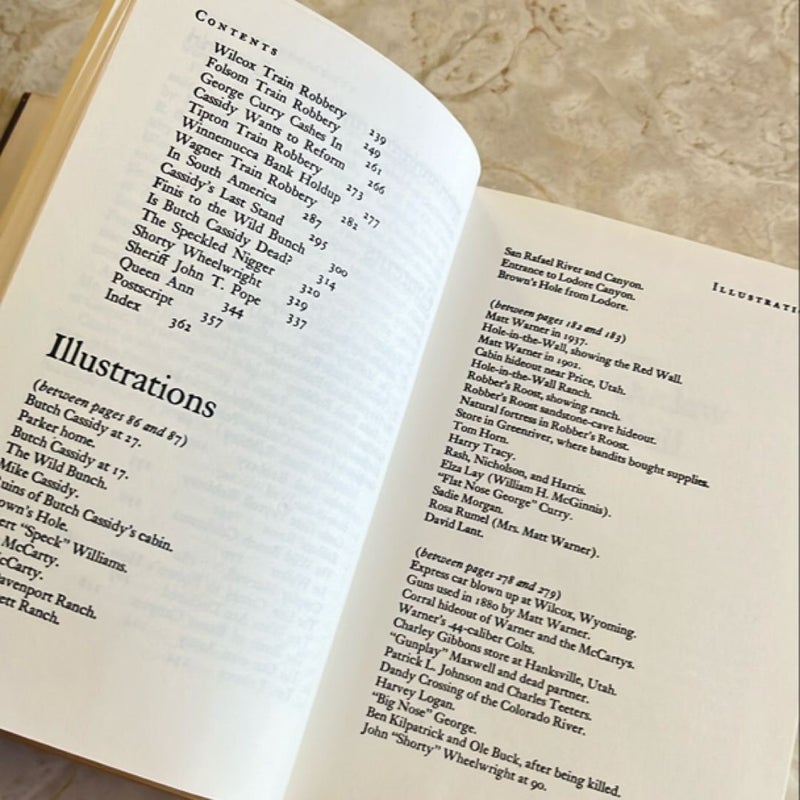 CONTENTS
Wilcox Train Robbery 239
Folsom Train Robbery 249
George Curry Cashes In 261
Cassidy Wants to Reform 266
Tipton Train Robbery 273
Winnemucca Bank Holdup 277
Wagner Train Robbery 282
In South America 287
Cassidy's Last Stand 295
Finis to the Wild Bunch 300
Is Butch Cassidy Dead? 314
The Speckled Nigger 320
Shorty Wheelwright 329
Sheriff John T. Pope 337
Queen Ann 344
Postscript 357
Index 362
Illustrations
(between pages 86 and 87)
Butch Cassidy at 27.
Parker home.
Butch Cassidy at 17.
The Wild Bunch.
Mike Cassidy.
uins of Butch Cassidy's cabin.
own's Hole.
ert "Speck" Williams.
McCarty.
cCarty.
avenport Ranch.
ett Ranch.
ILLUSTRATI
San Rafael River and Canyon.
Entrance to Lodore Canyon.
Brown's Hole from Lodore.
(between pages 182 and 183)
Matt Warner in 1937.
Hole-in-the-Wall, showing the Red Wall.
Matt Warner in 1902.
Cabin hideout near Price, Utah.
Hole-in-the-Wall Ranch.
Robber's Roost, showing ranch.
Robber's Roost sandstone-cave hideout.
Natural fortress in Robber's Roost.
Store in Greenriver, where bandits bought supplies.
Tom Horn.
Harry Tracy.
Rash, Nicholson, and Harris.
Elza Lay (William H. McGinnis).
"Flat Nose George" Curry.
Sadie Morgan.
Rosa Rumel (Mrs. Matt Warner).
David Lant.
(between pages 278 and 279)
Express car blown up at Wilcox, Wyoming.
Guns used in 1880 by Matt Warner.
Corral hideout of Warner and the McCartys.
Warner's .44-caliber Colts.
Charley Gibbons store at Hanksville, Utah.
"Gunplay" Maxwell and dead partner.
Patrick L. Johnson and Charles Teeters.
Dandy Crossing of the Colorado River.
Harvey Logan.
"Big Nose" George.
Ben Kilpatrick and Ole Buck, after being killed.
John "Shorty" Wheelwright at 90.